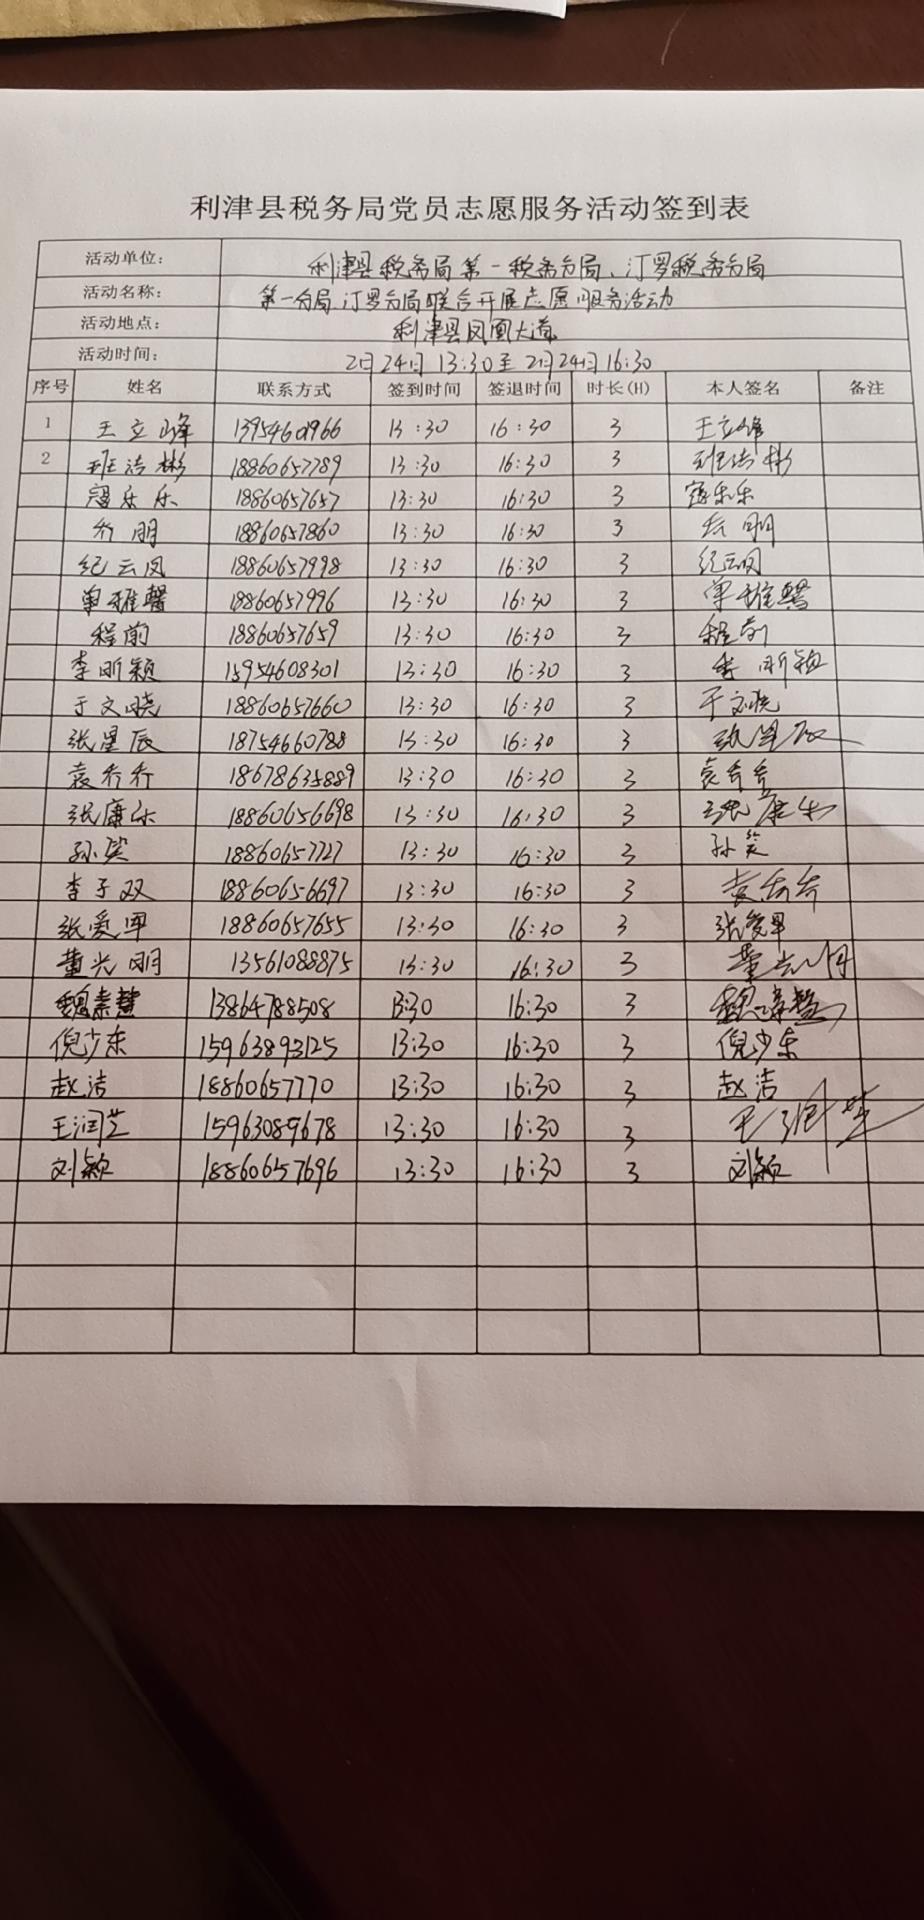 利津县税务局党员志愿服务活动签到表
活动单位： 利津县税务局第一税务分局、汀罗税务分局
活动名称： 第一分局、汀罗分局联合开展志愿服务活动
活动地点： 利津县凤凰大道
活动时间： 2月24日 13:30至 2月24日 16:30
序号 姓名 联系方式 签到时间 签退时间 时长(H) 本人签名 备注
1 王立峰 13954601966 13:30 16:30 3 王立峰
2 班洁彬 18860657789 13:30 16:30 3 班洁彬
寇乐乐 18860657657 13:30 16:30 3 寇乐乐
乔明 18860657860 13:30 16:30 3 乔明
纪云凤 18860657998 13:30 16:30 3 纪云凤
单雅馨 18860657996 13:30 16:30 3 单雅馨
程前 18860657659 13:30 16:30 3 程前
李昕颖 15954608301 13:30 16:30 3 李昕颖
于文晓 18860657660 13:30 16:30 3 于文晓
张星辰 18754660788 13:30 16:30 3 张星辰
袁乔乔 18678635889 13:30 16:30 3 袁乔乔
张康乐 18860656698 13:30 16:30 3 张康乐
孙笑 18860657727 13:30 16:30 3 孙笑
李子双 18860656697 13:30 16:30 3 袁乔乔
张爱军 18860657655 13:30 16:30 3 张爱军
董光明 13561088875 13:30 16:30 3 董光明
魏素慧 13864788508 13:30 16:30 3 魏素慧
倪少东 15963893125 13:30 16:30 3 倪少东
赵洁 18860657770 13:30 16:30 3 赵洁
王润芝 15963089678 13:30 16:30 3 王润芝
刘颖 18860657696 13:30 16:30 3 刘颖